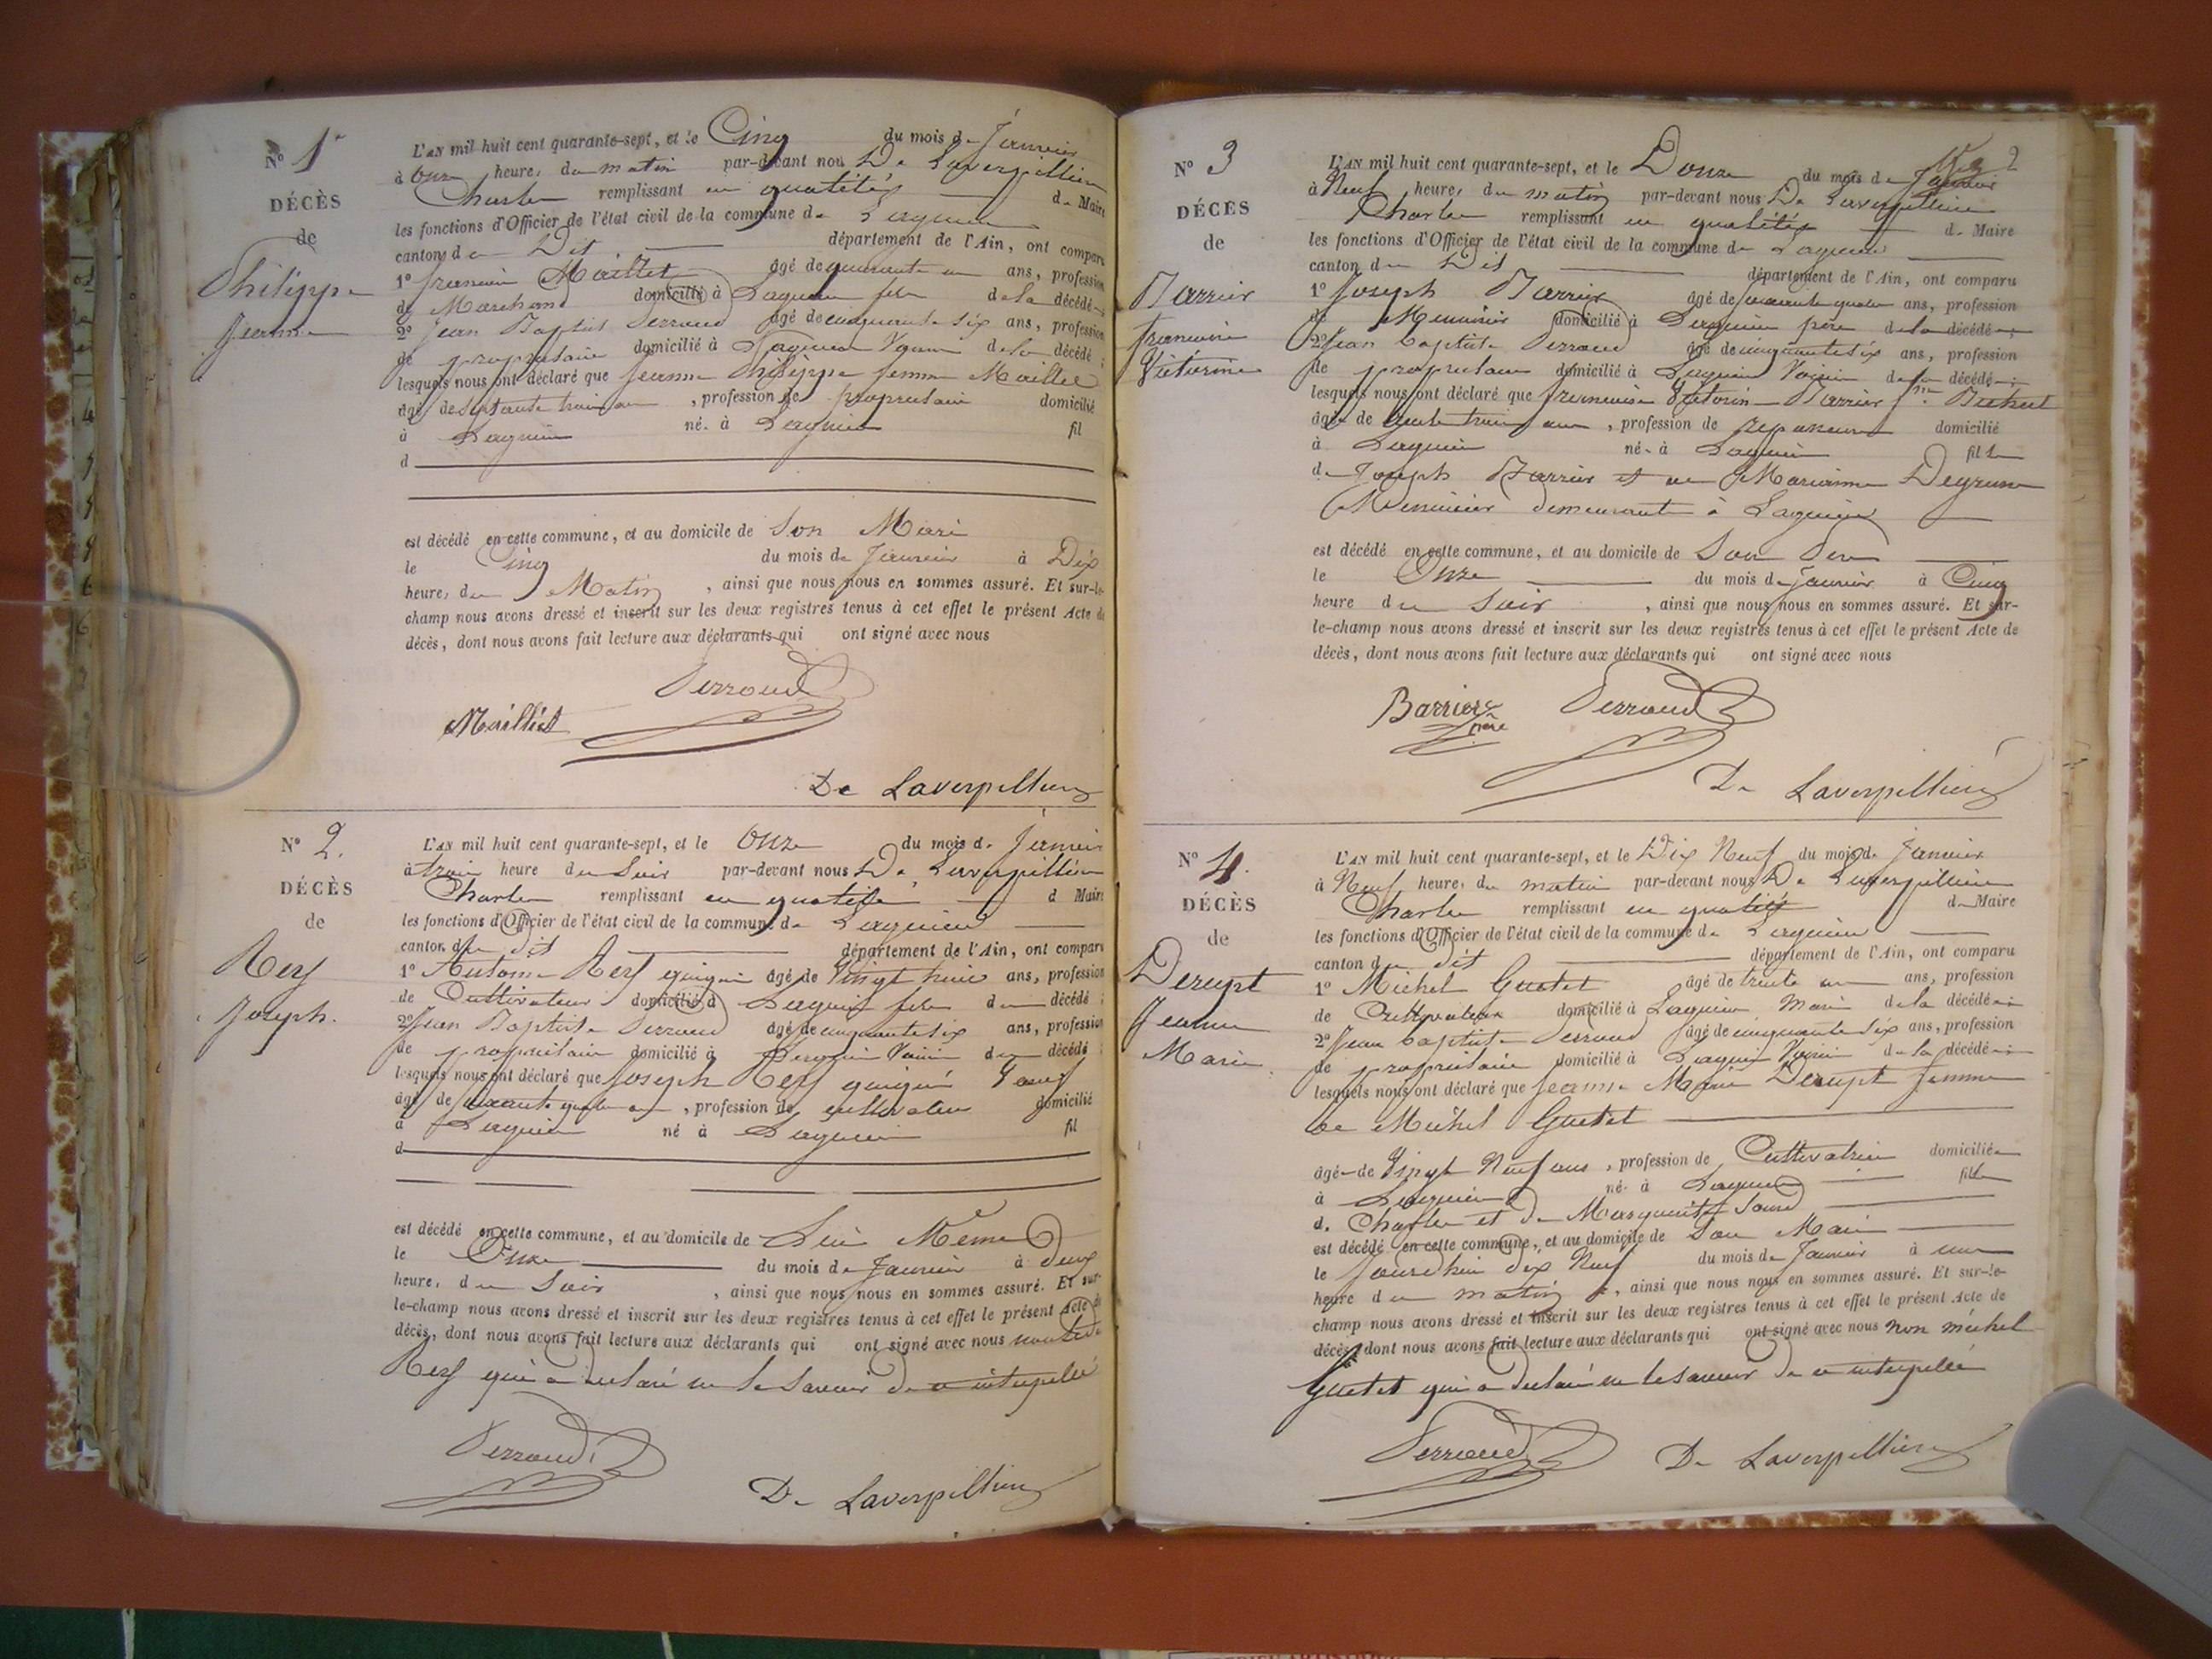 N° 1
DÉCÈS
de
Philippe
Jeanne
L'AN mil huit cent quarante-sept, et le Cinq du mois de Janvier
à Onze heures du matin par-devant nous De Laverpillière
Charles remplissant en qualités de Maire
les fonctions d'Officier de l'état civil de la commune de Lagnieu
canton du Dit département de l'Ain, ont comparu
1° François Maillet âgé de quarante un ans, profession
de Marchand domicilié à Lagnieu fils de la décédée
2° Jean Baptiste Perroud âgé de cinquante six ans, profession
de propriétaire domicilié à Lagnieu Voisin de la décédé ;
lesquels nous ont déclaré que Jeanne Philippe femme Maillet
âgé de septante trois ans, profession de propriétaire domicilié
à Lagnieu né à Lagnieu fil
d
est décédé en cette commune, et au domicile de Son Mari
le Cinq du mois de Janvier à Dix
heures du Matin, ainsi que nous nous en sommes assuré. Et sur-le-
champ nous avons dressé et inscrit sur les deux registres tenus à cet effet le présent Acte de
décès, dont nous avons fait lecture aux déclarants qui ont signé avec nous
Perroud
Maillet
De Laverpillière
N° 2.
DÉCÈS
de
Rey
Joseph.
L'AN mil huit cent quarante-sept, et le Onze du mois de Janvier
à trois heure du Soir par-devant nous De Laverpillière
Charles remplissant en qualité d Maire
les fonctions d'Officier de l'état civil de la commune de Lagnieu
canton du dit département de l'Ain, ont comparu
1° Antoine Rey âgé de Vingt huit ans, profession
de Cultivateur domicilié à Lagnieu fils du décédé ;
2° Jean Baptiste Perroud âgé de cinquante six ans, profession
de propriétaire domicilié à Lagnieu Voisin du décédé ;
lesquels nous ont déclaré que Joseph Rey
âgé de ans, profession de cultivateur domicilié
à Lagnieu né à Lagnieu fil
d
est décédé en cette commune, et au domicile de Lui Même
le Onze du mois de Janvier à deux
heures du Soir, ainsi que nous nous en sommes assuré. Et sur-
le-champ nous avons dressé et inscrit sur les deux registres tenus à cet effet le présent Acte de
décès, dont nous avons fait lecture aux déclarants qui ont signé avec nous
Rey qui a declaré ne le savoir de ce interpellé
Perroud
De Laverpillière
2
N° 3
DÉCÈS
de
Barrier
françoise
Victorine
L'AN mil huit cent quarante-sept, et le Douze du mois de Janvier
à Neuf heures du matin par-devant nous De Laverpillière
Charles remplissant en qualités de Maire
les fonctions d'Officier de l'état civil de la commune de Lagnieu
canton du Dit département de l'Ain, ont comparu
1° Joseph Barrier âgé de ans, profession
de Menuisier domicilié à Lagnieu père de la décédée ;
2° Jean baptiste Perroud âgé de cinquante six ans, profession
de propriétaire domicilié à Lagnieu Voisin de la décédée ;
lesquels nous ont déclaré que françoise Victorine Barrier
âgée de trente trois ans, profession de domicilié
à Lagnieu née à Lagnieu fille
de Joseph Barrier et de Marianne
Menuisier demeurant à Lagnieu
est décédé en cette commune, et au domicile de Son Père
le Onze du mois de Janvier à Cinq
heure du Soir, ainsi que nous nous en sommes assuré. Et sur-
le-champ nous avons dressé et inscrit sur les deux registres tenus à cet effet le présent Acte de
décès, dont nous avons fait lecture aux déclarants qui ont signé avec nous
Barriere père
Perroud
De Laverpillière
N° 4.
DÉCÈS
de
Derupt
Jeanne
Marie
L'AN mil huit cent quarante-sept, et le Dix Neuf du mois de Janvier
à Neuf heures du matin par-devant nous De Laverpillière
Charles remplissant en qualité de Maire
les fonctions d'Officier de l'état civil de la commune de Lagnieu
canton du dit département de l'Ain, ont comparu
1° Michel Guetet âgé de trente un ans, profession
de Cultivateur domicilié à Lagnieu Mari de la décédée
2° Jean baptiste Perroud âgé de cinquante six ans, profession
de propriétaire domicilié à Lagnieu Voisin de la décédée
lesquels nous ont déclaré que Jeanne Marie Derupt femme
de Michel Guetet
âgée de Vingt Neuf ans, profession de Cultivatrice domiciliée
à Lagnieu née à Lagnieu fille
de Charles et de Marguerite
est décédé en cette commune, et au domicile de Son Mari
le Jourdhui dix Neuf du mois de Janvier à une
heure du matin, ainsi que nous nous en sommes assuré. Et sur-le-
champ nous avons dressé et inscrit sur les deux registres tenus à cet effet le présent Acte de
décès, dont nous avons fait lecture aux déclarants qui ont signé avec nous non michel
Guetet qui a declaré ne le savoir de ce interpellé
Perroud
De Laverpillière